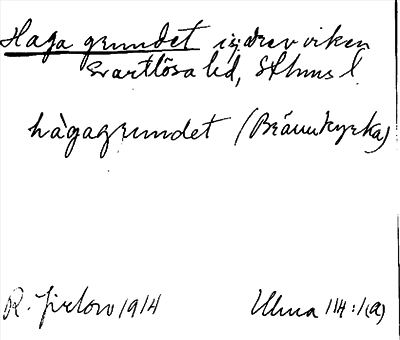 Haga grundet i Järvaviken
Svartlösa hd, Sthms l.
hàgagrundet (Brännkyrka)
R. Jirlow 1914 Ulma 114:1(a)